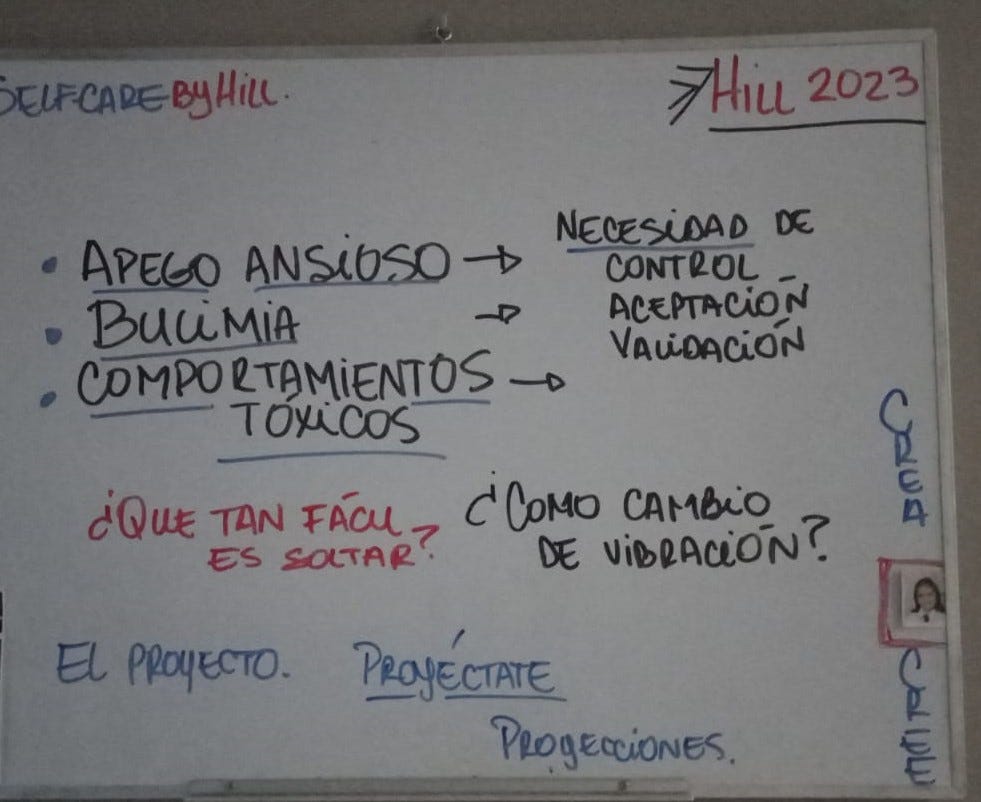 SELFCARE By Hill.
Hill 2023
• APEGO ANSiOSO → NECESiDAD DE
CONTROL
• BULiMiA → ACEPTACiÓN
VALiDACiÓN
• COMPORTAMiENTOS →
TÓXiCOS
¿QUE TAN FÁCiL
ES SOLTAR?
¿COMO CAMBiO
DE ViBRACiÓN?
EL PROYECTO. PROYÉCTATE
PROYECCiONES.
CREA